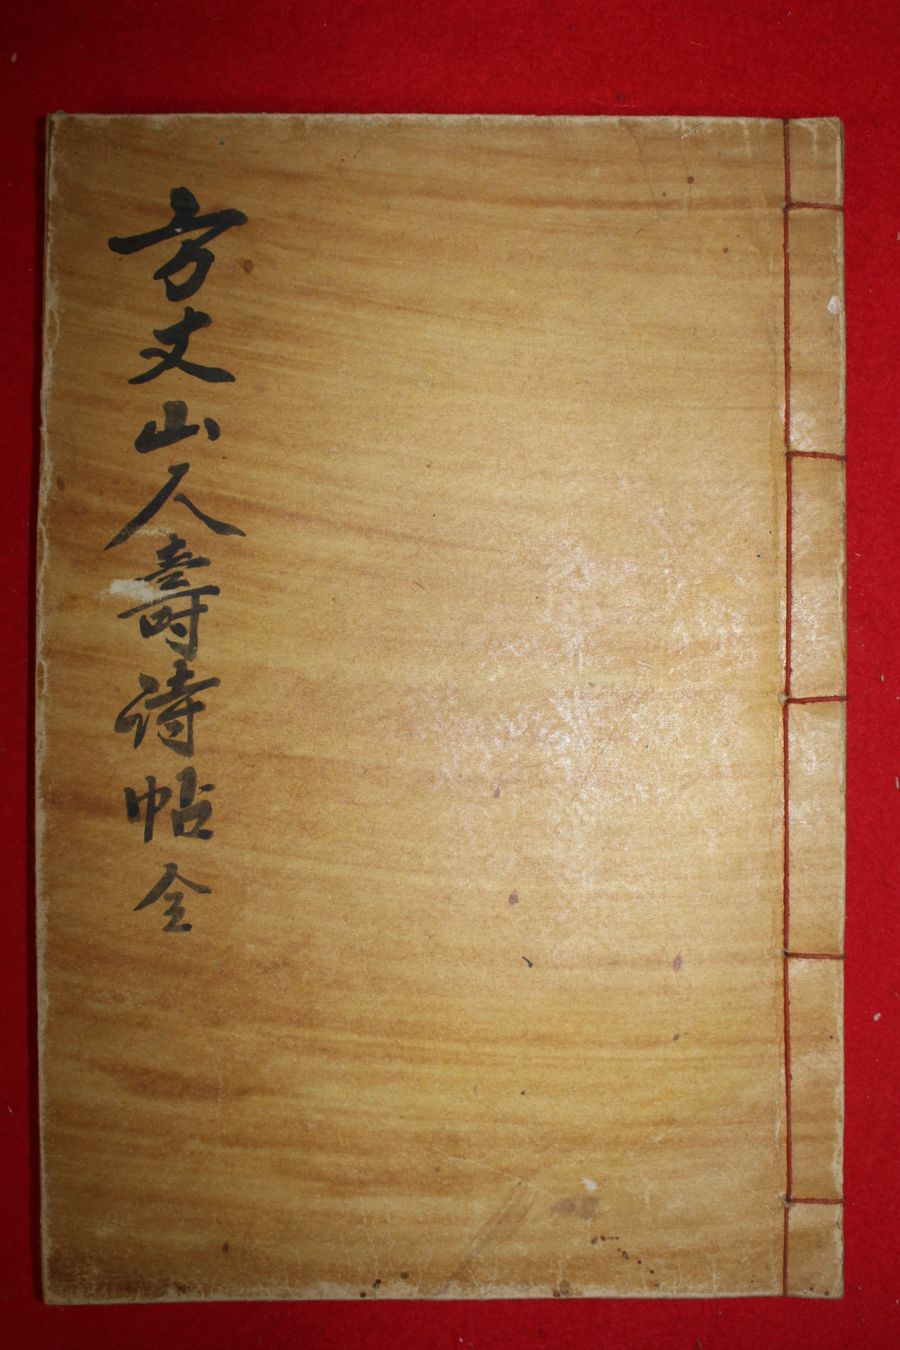 方丈山人壽詩帖全